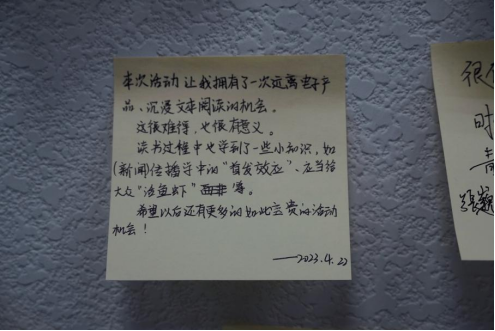 本次活动让我拥有了一次远离电子产
品、沉浸文本阅读的机会。
这很难得,也很有意义。
读书过程中也学到了一些小知识,如
(新闻)传播学中的“首发效应”、应当给
大众“治鱼虾”等。
希望以后还有更多的如此宝贵的活动
机会!
——2023.4.22
很
时